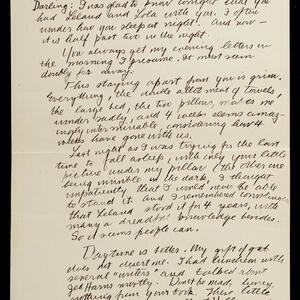 Darling: I was glad to know tonight that you
had Leland and Lola with you. I often
wonder how you sleep at night. And now —
it is half past two in the night.
You always get my evening letters in
the morning I presume. It must seem
doubly far away.
This staying apart from you is grim.
Everything, the whole allotment of towels,
the large bed, the two pillows, makes me
wonder sadly, and 4 weeks seems amaz-
ingly interminable, considering how 4
weeks have gone with us.
Last night as I was trying for the last
time to fall asleep, with only your little
picture under my pillow (the other one
being invisible in the dark, I thought
impatiently that I would never be able
to stand it and I remembered convincingly
that Leland stood it for 4 years, with
many a dreadful knowledge besides.
So it seems people can.
Daytime is better. My gift of gab
does not desert me. I had luncheon with
several "writers" and talked about
Jed Harris mostly. Don't be mad, honey,
nothing from your book. These little